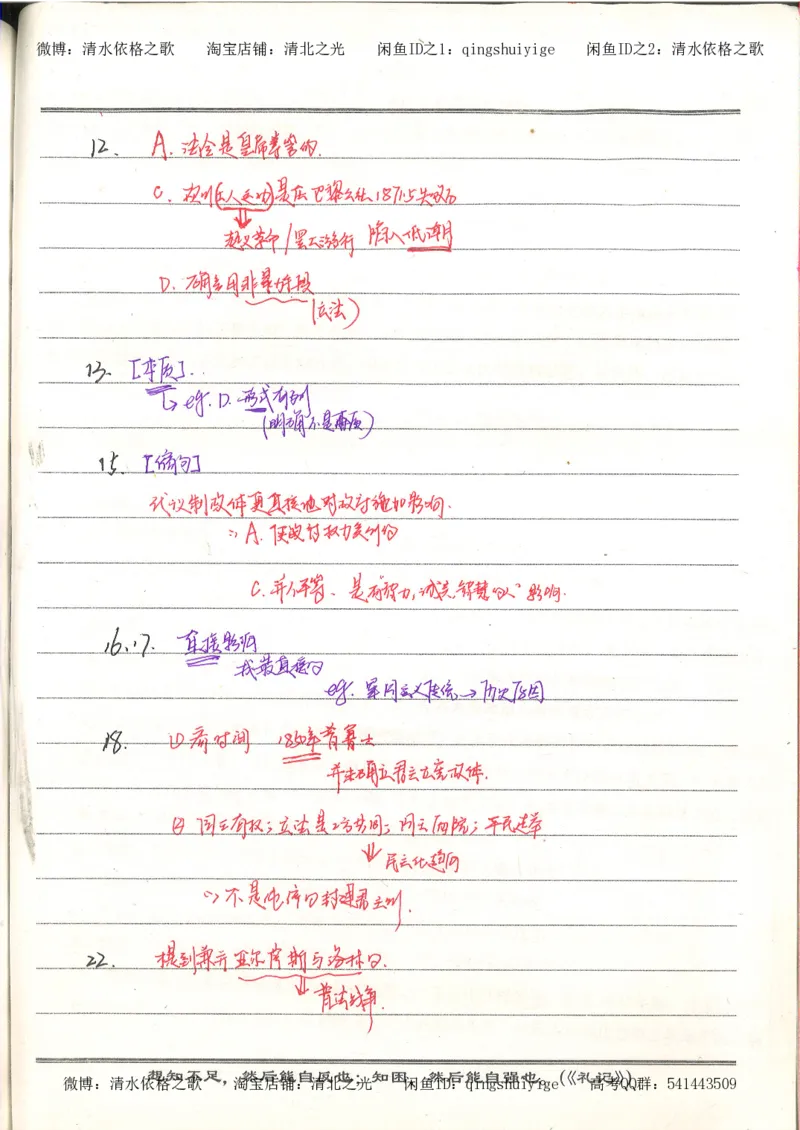 微博：清水依格之歌 淘宝店铺：清北之光 闲鱼ID之1：qingshuiyige 闲鱼ID之2：清水依格之歌
12. A. 法令是皇帝掌管的.
C. 在巴黎公社1871.5失败后
陷入低潮
D. 确立用非暴力手段
(立法)
13. [本质]..
eg. D. 形式有别
(明确不是本质)
15. [偷句]
代议制政体更直接地对政府施加影响.
∵ A. 使政府权力
C. 并不平等、是有能力,诚实,智慧的人"影响.
16.17. 直接影响
找最直接的
eg. 军国主义传统→历史原因
18. ① 看时间 1850年普鲁士
并未确立君主立宪政体.
② 国王有权; 立法是2方共同; 国王两院; 平民选举
民主化趋向
∴不是传统的封建君主制.
22. 提到兼并亚尔萨斯与洛林的.
普法战争.
想知不足，然后能自反也；知困，然后能自强也。(《礼记》)
微博：清水依格之歌 淘宝店铺：清北之光 闲鱼ID：qingshuiyige 高考QQ群：541443509